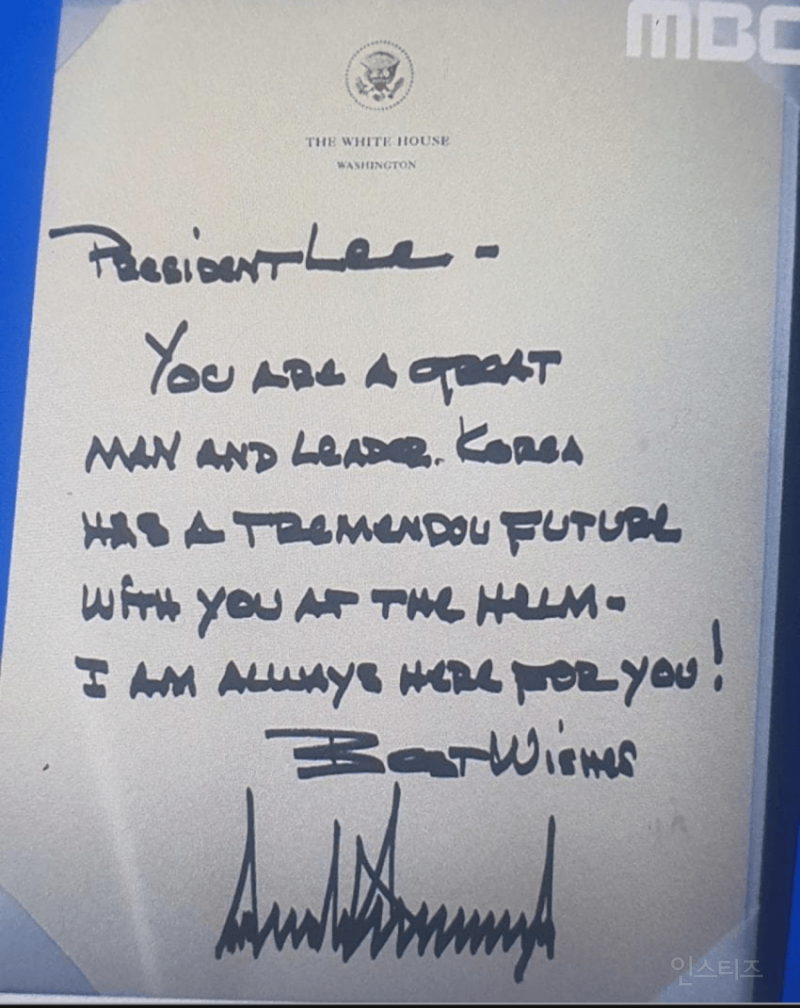 MBC
THE WHITE HOUSE
WASHINGTON
PRESIDENT LEE -
YOU ARE A GREAT
MAN AND LEADER. KOREA
HAS A TREMENDOU FUTURE
WITH YOU AT THE HELM-
I AM ALWAYS HERE FOR YOU!
BEST WISHES
인스티즈